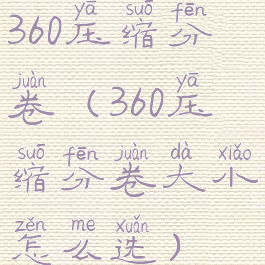 yā suō fēn
360压缩分
juàn yā
卷(360压
suō fēn juàn dà xiǎo
缩分卷大小
zěn me xuǎn
怎么选)